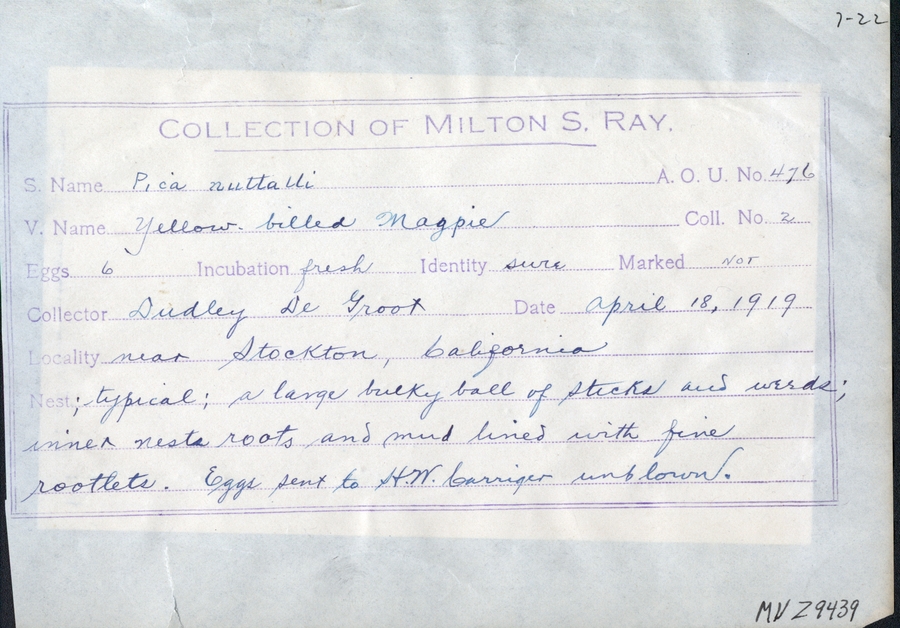 7-22
COLLECTION OF MILTON S. RAY.
S. Name Pica nuttalli A. O. U. No. 476
V. Name Yellow-billed Magpie Coll. No. 2
Eggs 6 Incubation fresh Identity sure Marked NOT
Collector Dudley De Groot Date April 18, 1919
Locality near Stockton, California
Nest; typical; a large bulky ball of sticks and weeds;
inner nests roots and mud lined with fine
rootlets. Eggs sent to H.W. Carriger unblown.
MVZ9439